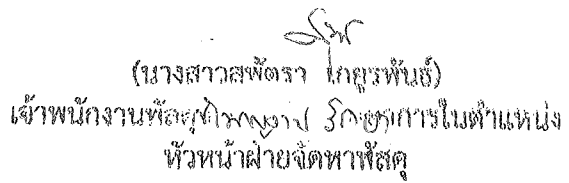 (นางสาวสุพัตรา ไกยูรพันธ์)
เจ้าพนักงานพัสดุชำนาญงาน รักษาการในตำแหน่ง
หัวหน้าฝ่ายจัดหาพัสดุ